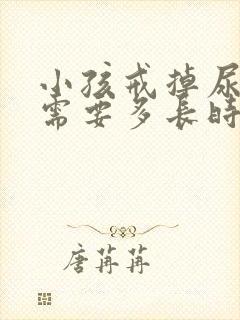 小孩戒掉尿
需要多長時
唐苒苒